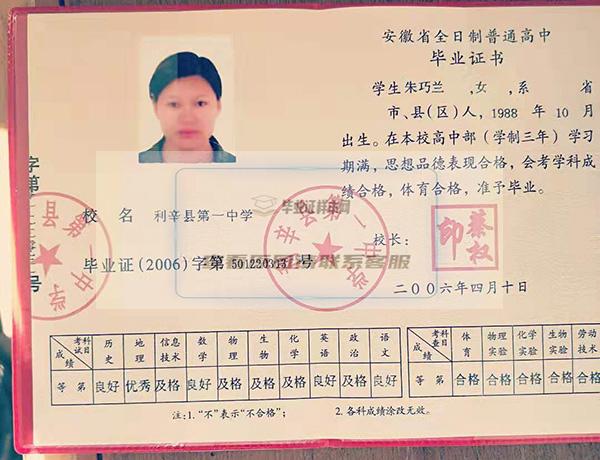 安徽省全日制普通高中
毕业证书
学生朱巧兰 ,女 ,系 省
市、县(区)人, 1988 年 10 月
出生。在本校高中部(学制三年)学习
期满,思想品德表现合格,会考学科成
绩合格,体育合格,准予毕业。
校 名 利辛县第一中学
校长:
蔡权印
毕业证(2006)字第 号
二〇〇六年四月十日
毕业证样本网
联系客服
字第
号
县第一中学
利辛县第一中学
成绩 考试科目 历史 地理 信息技术 数学 物理 生物 化学 英语 政治 语文
等 第 良好 优秀 及格 良好 及格 及格 及格 良好 及格 良好
成绩 考查科目 体育 物理实验 化学实验 生物实验 劳动技术
等 第 合格 合格 合格 合格 合格
注:1.“不”表示“不合格”; 2.各科成绩涂改无效。